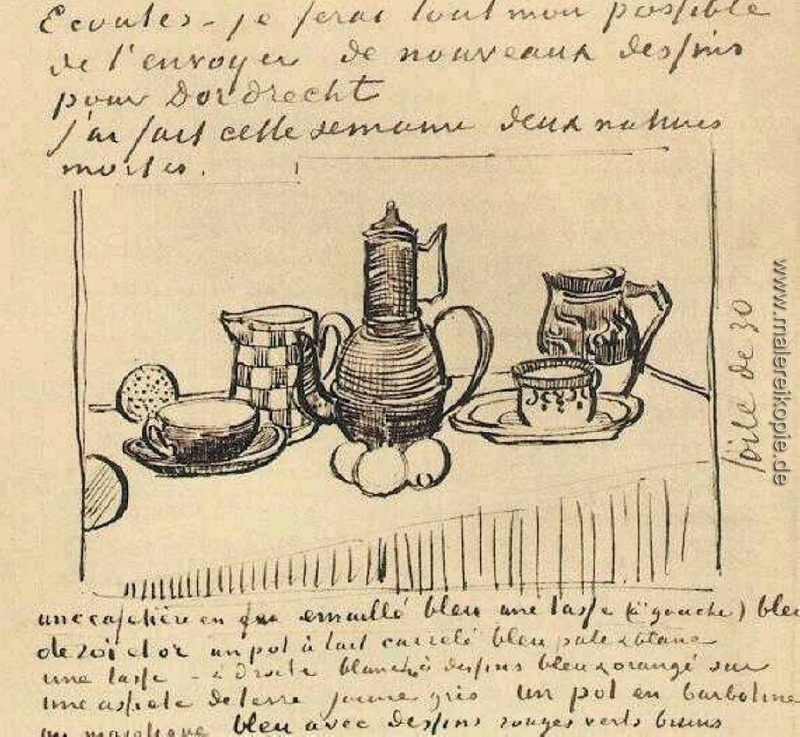 Ecoutes - je ferai tout mon possible
de t'envoyer de nouveaux dessins
pour Dordrecht
j'ai fait cette semaine deux natures
mortes.
toile de 30
une cafetière en fer emaillé bleu une tasse (à gauche) bleu
de roi et or un pot à lait carrelé bleu pale & blanc
une tasse - à droite blanche à dessins bleu & orangé sur
une assiete de terre jaune gris un pot en barbotine
ou majolique bleu avec dessins rouges verts bruns
www.malereikopie.de